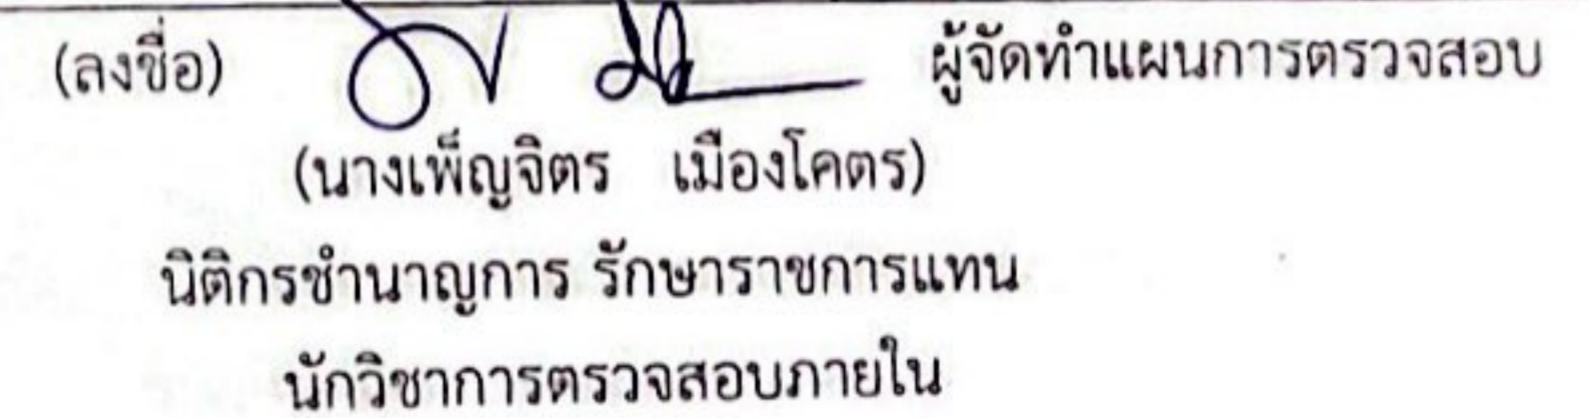 (ลงชื่อ) ผู้จัดทำแผนการตรวจสอบ
(นางเพ็ญจิตร เมืองโคตร)
นิติกรชำนาญการ รักษาราชการแทน
นักวิชาการตรวจสอบภายใน